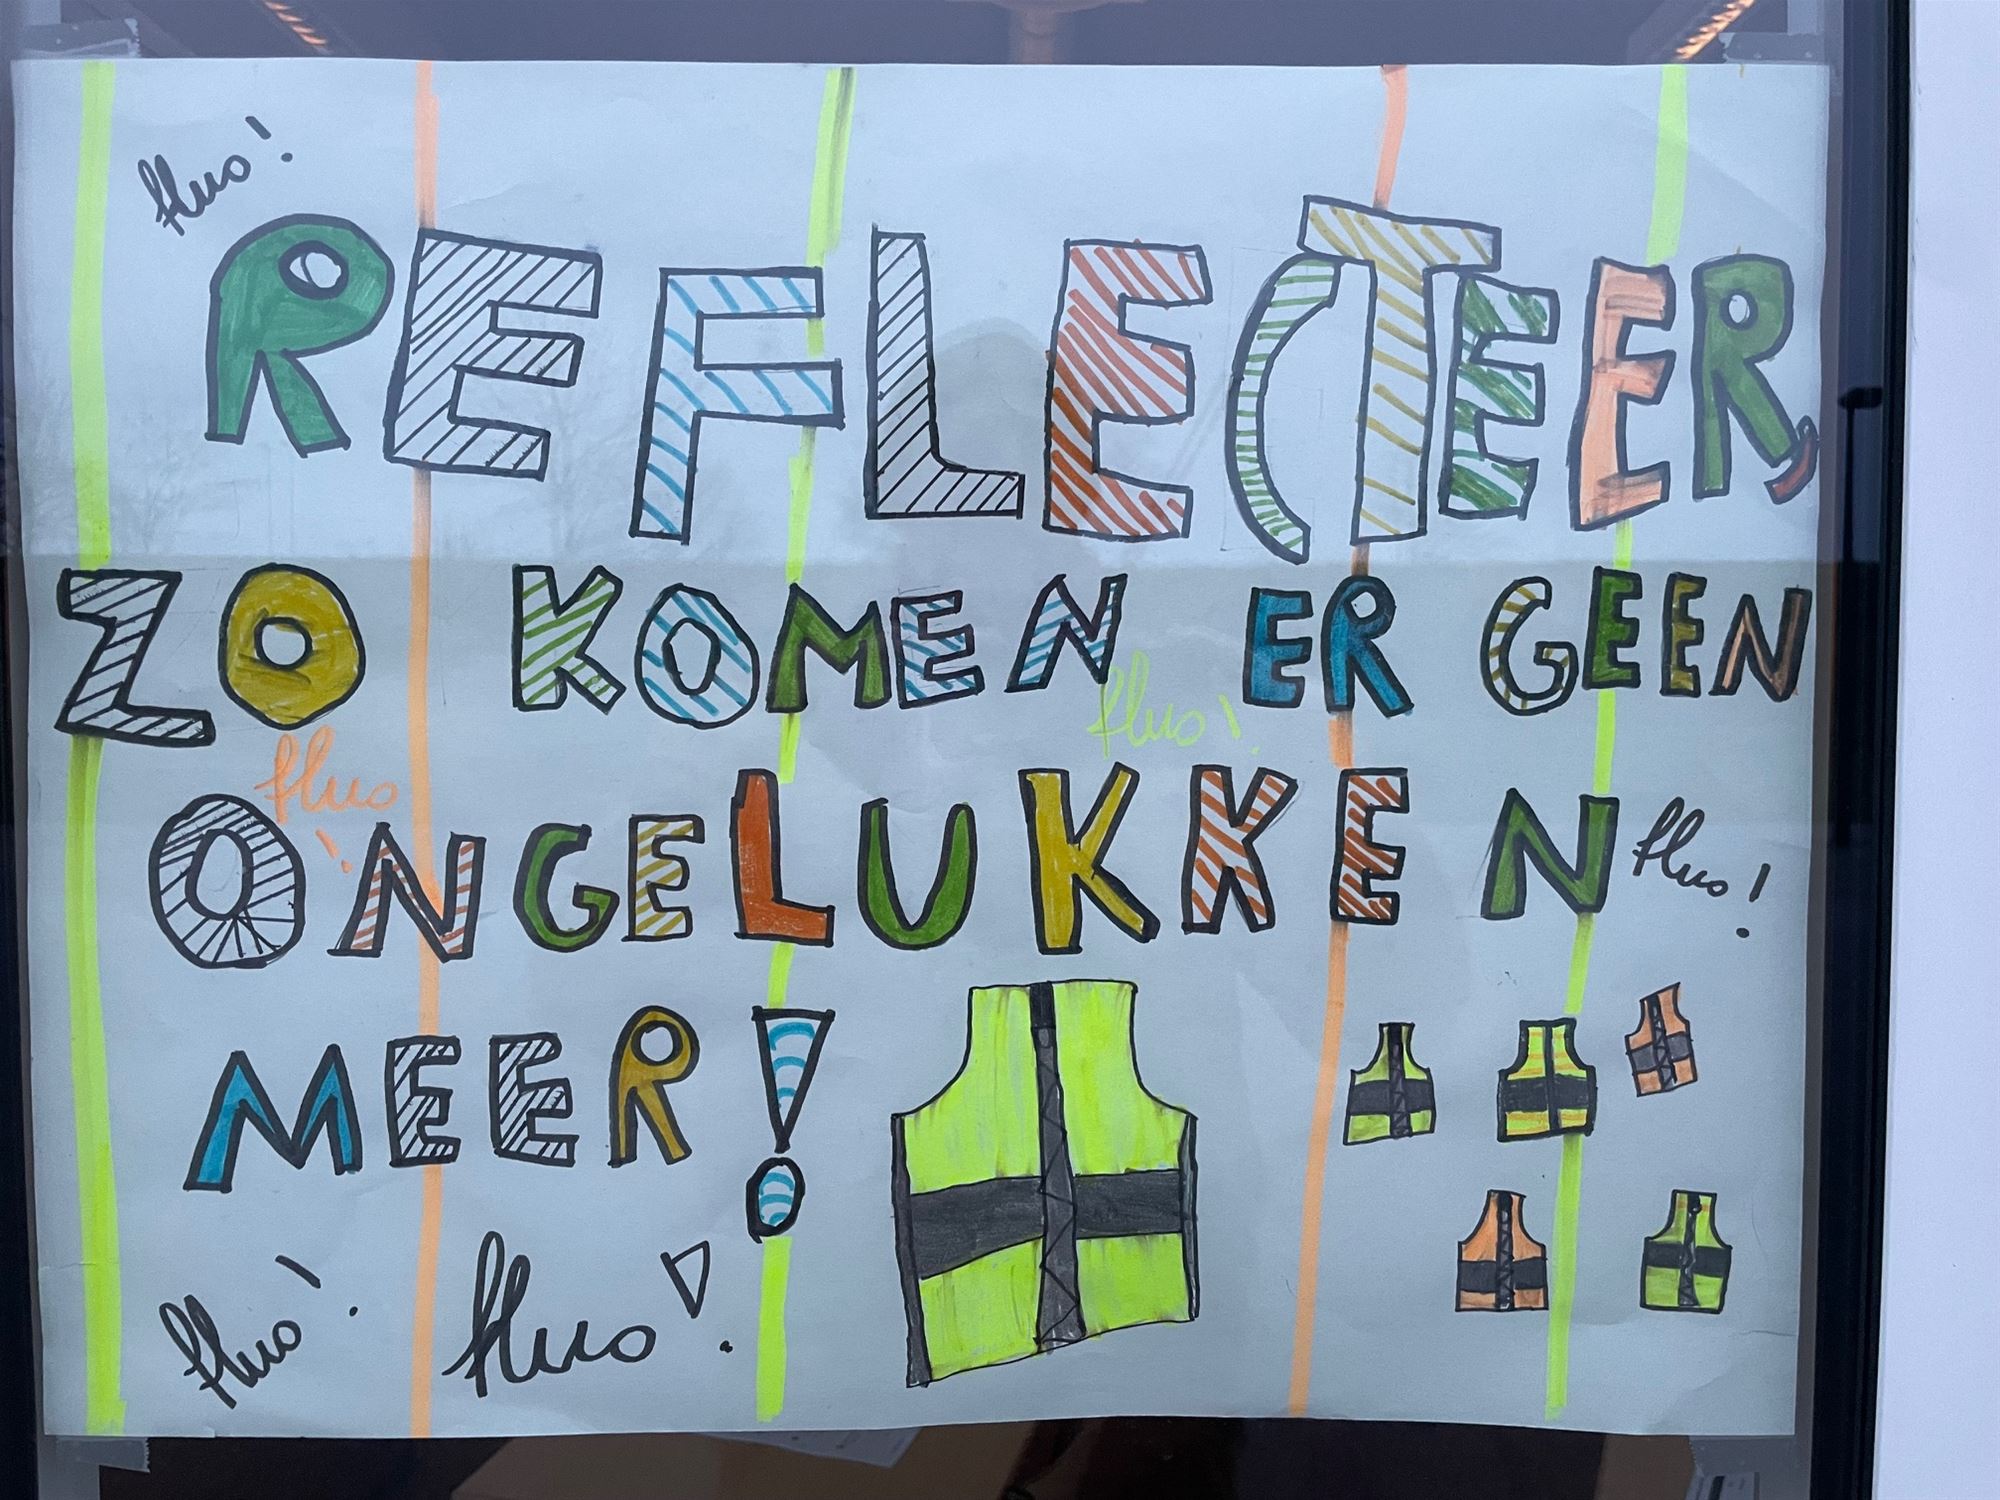 fluo!
REFLECTEER,
ZO KOMEN ER GEEN
fluo!
fluo!
ONGELUKKEN
fluo!
MEER!
fluo!
fluo!